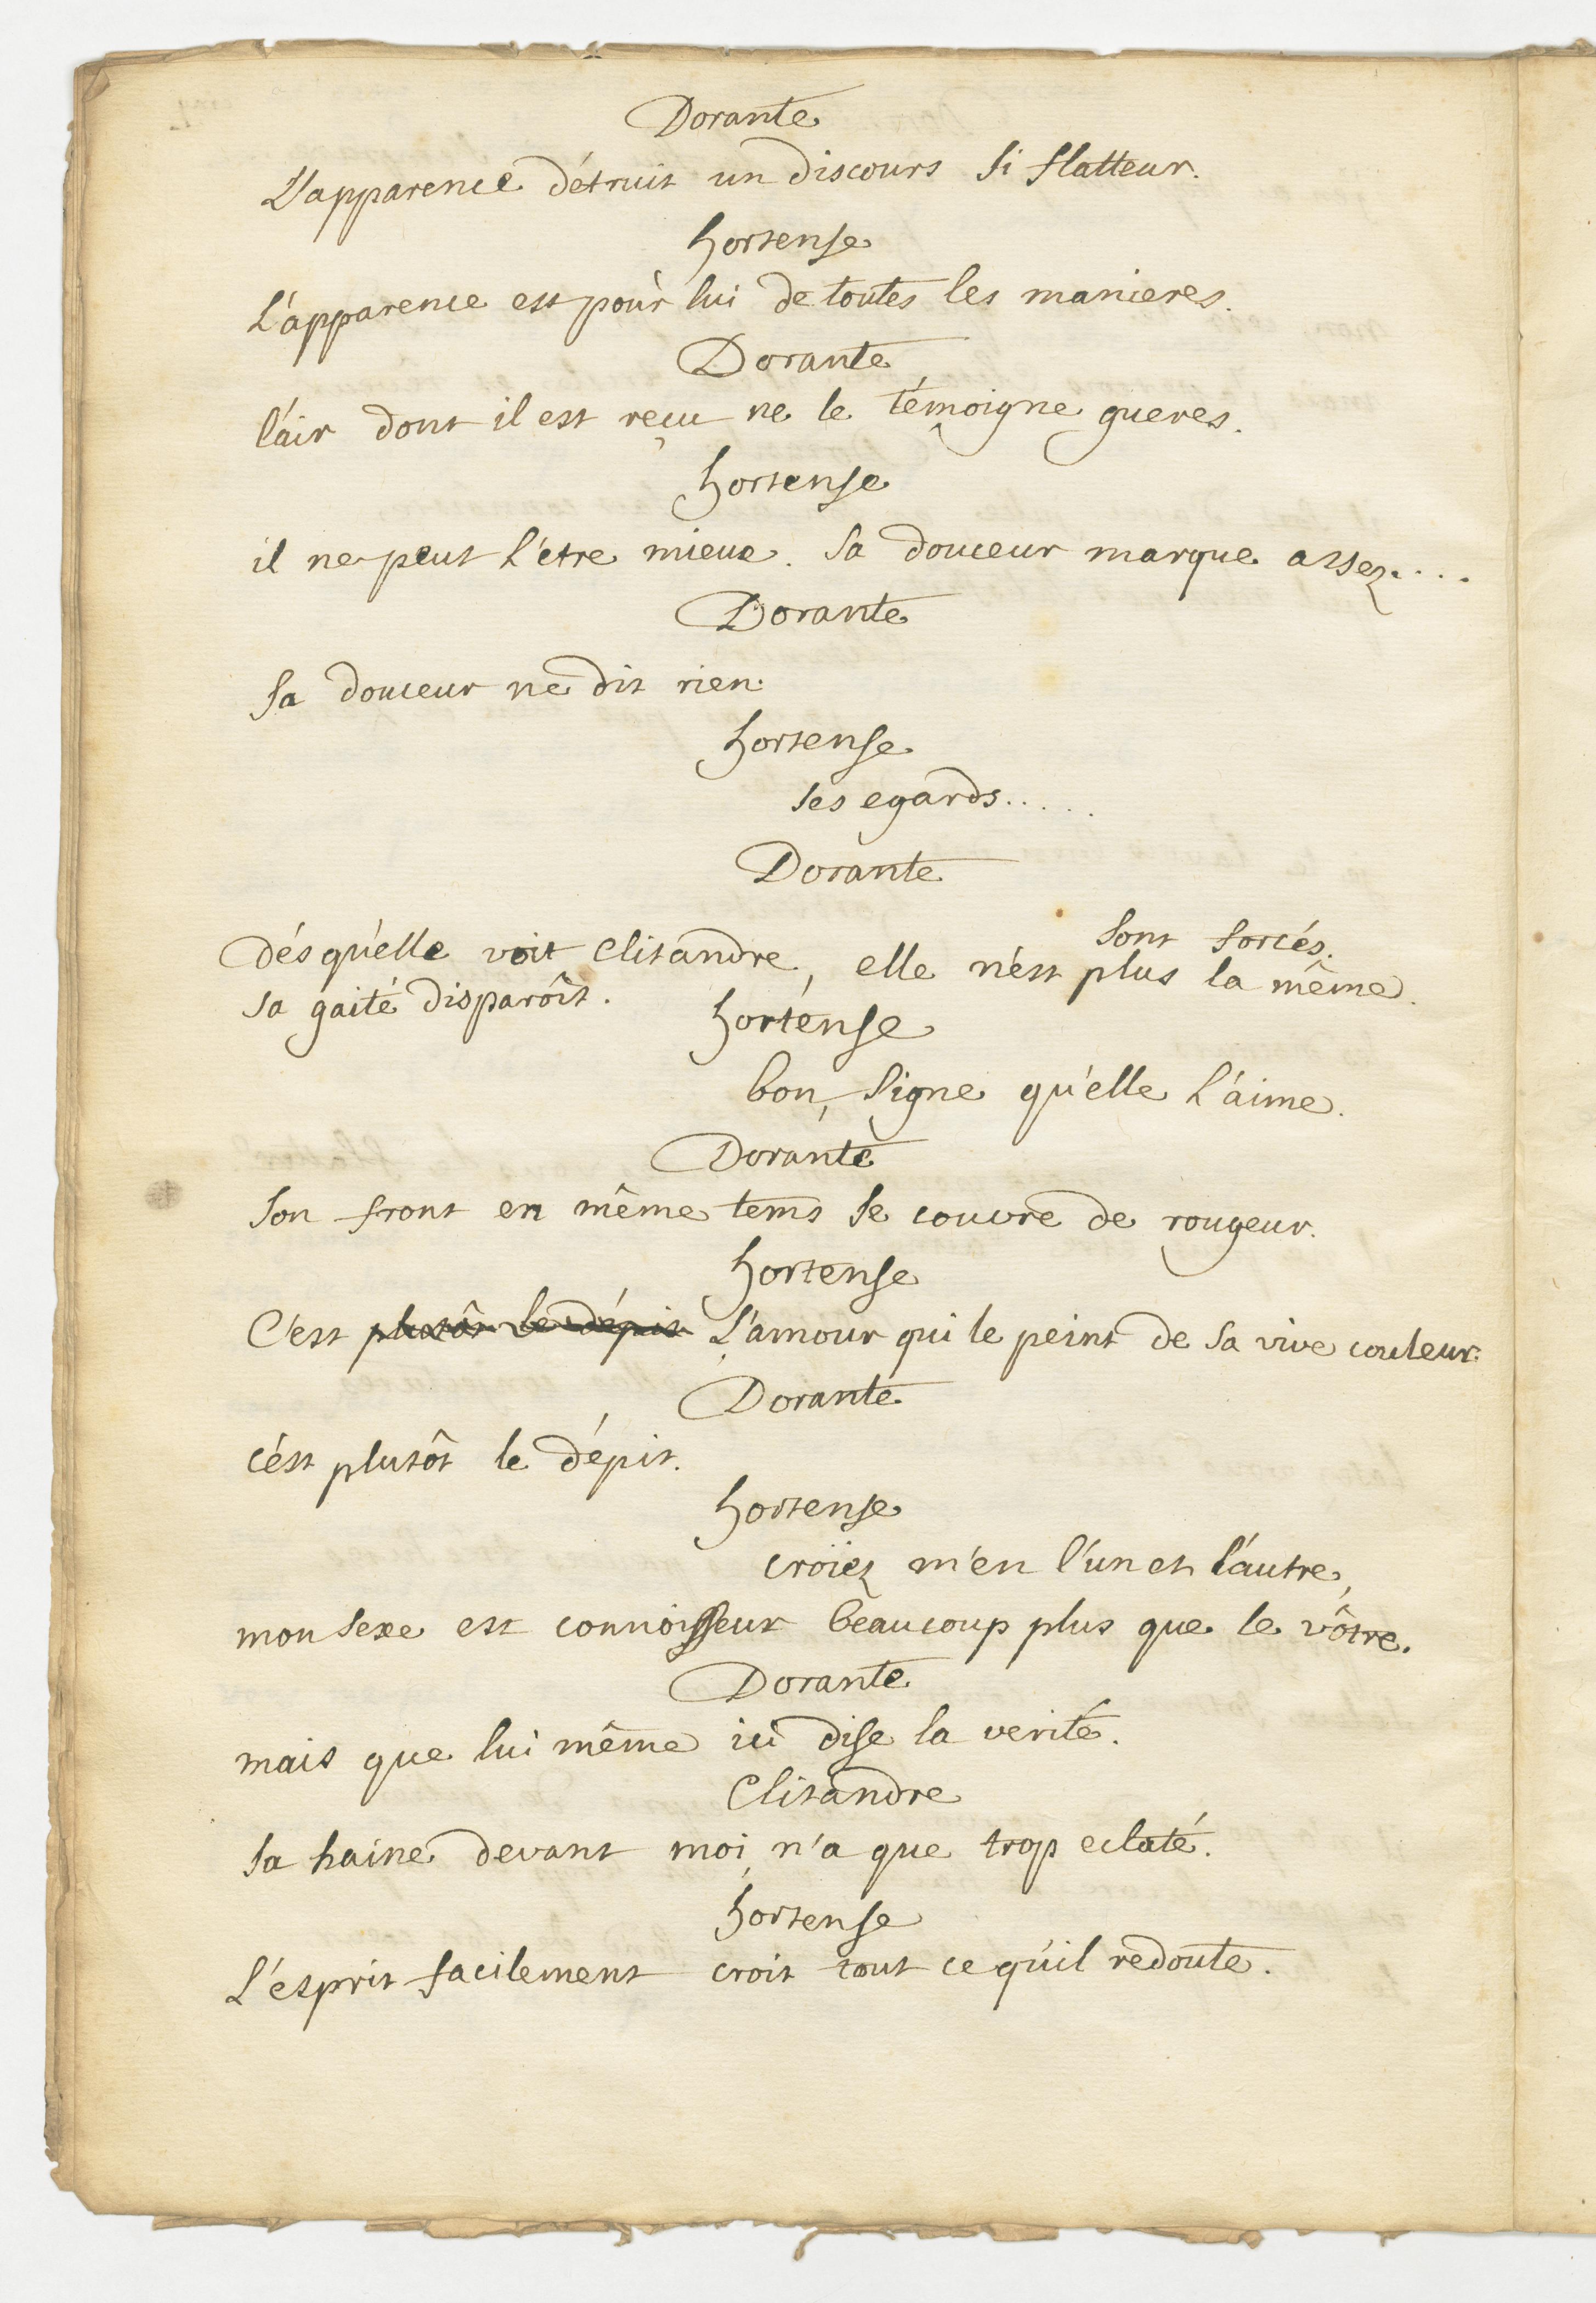 Dorante
L'apparence détruit un discours si flatteur.
hortense
L'apparence est pour lui de toutes les manieres.
Dorante
l'air dont il est reçu ne le témoigne gueres.
hortense
il ne peut l'etre mieux. Sa douceur marque assez....
Dorante
Sa douceur ne dit rien.
hortense
ses egards.....
Dorante
sont forcés.
dés qu'elle voit Clitandre, elle n'est plus la même.
sa gaité disparôit.
hortense
bon, signe qu'elle l'aime.
Dorante
Son front en même tems se couvre de rougeur.
hortense
C'est plutôt le dépit L'amour qui le peint de sa vive couleur.
Dorante
c'est plutôt le dépit.
hortense
croïez m'en l'un et l'autre,
mon sexe est connoisseur beaucoup plus que le vôtre.
Dorante
mais que lui même ici dise la verité.
Clitandre
Sa haine devant moi n'a que trop eclaté.
hortense
L'esprit facilement croit tout ce qu'il redoute.